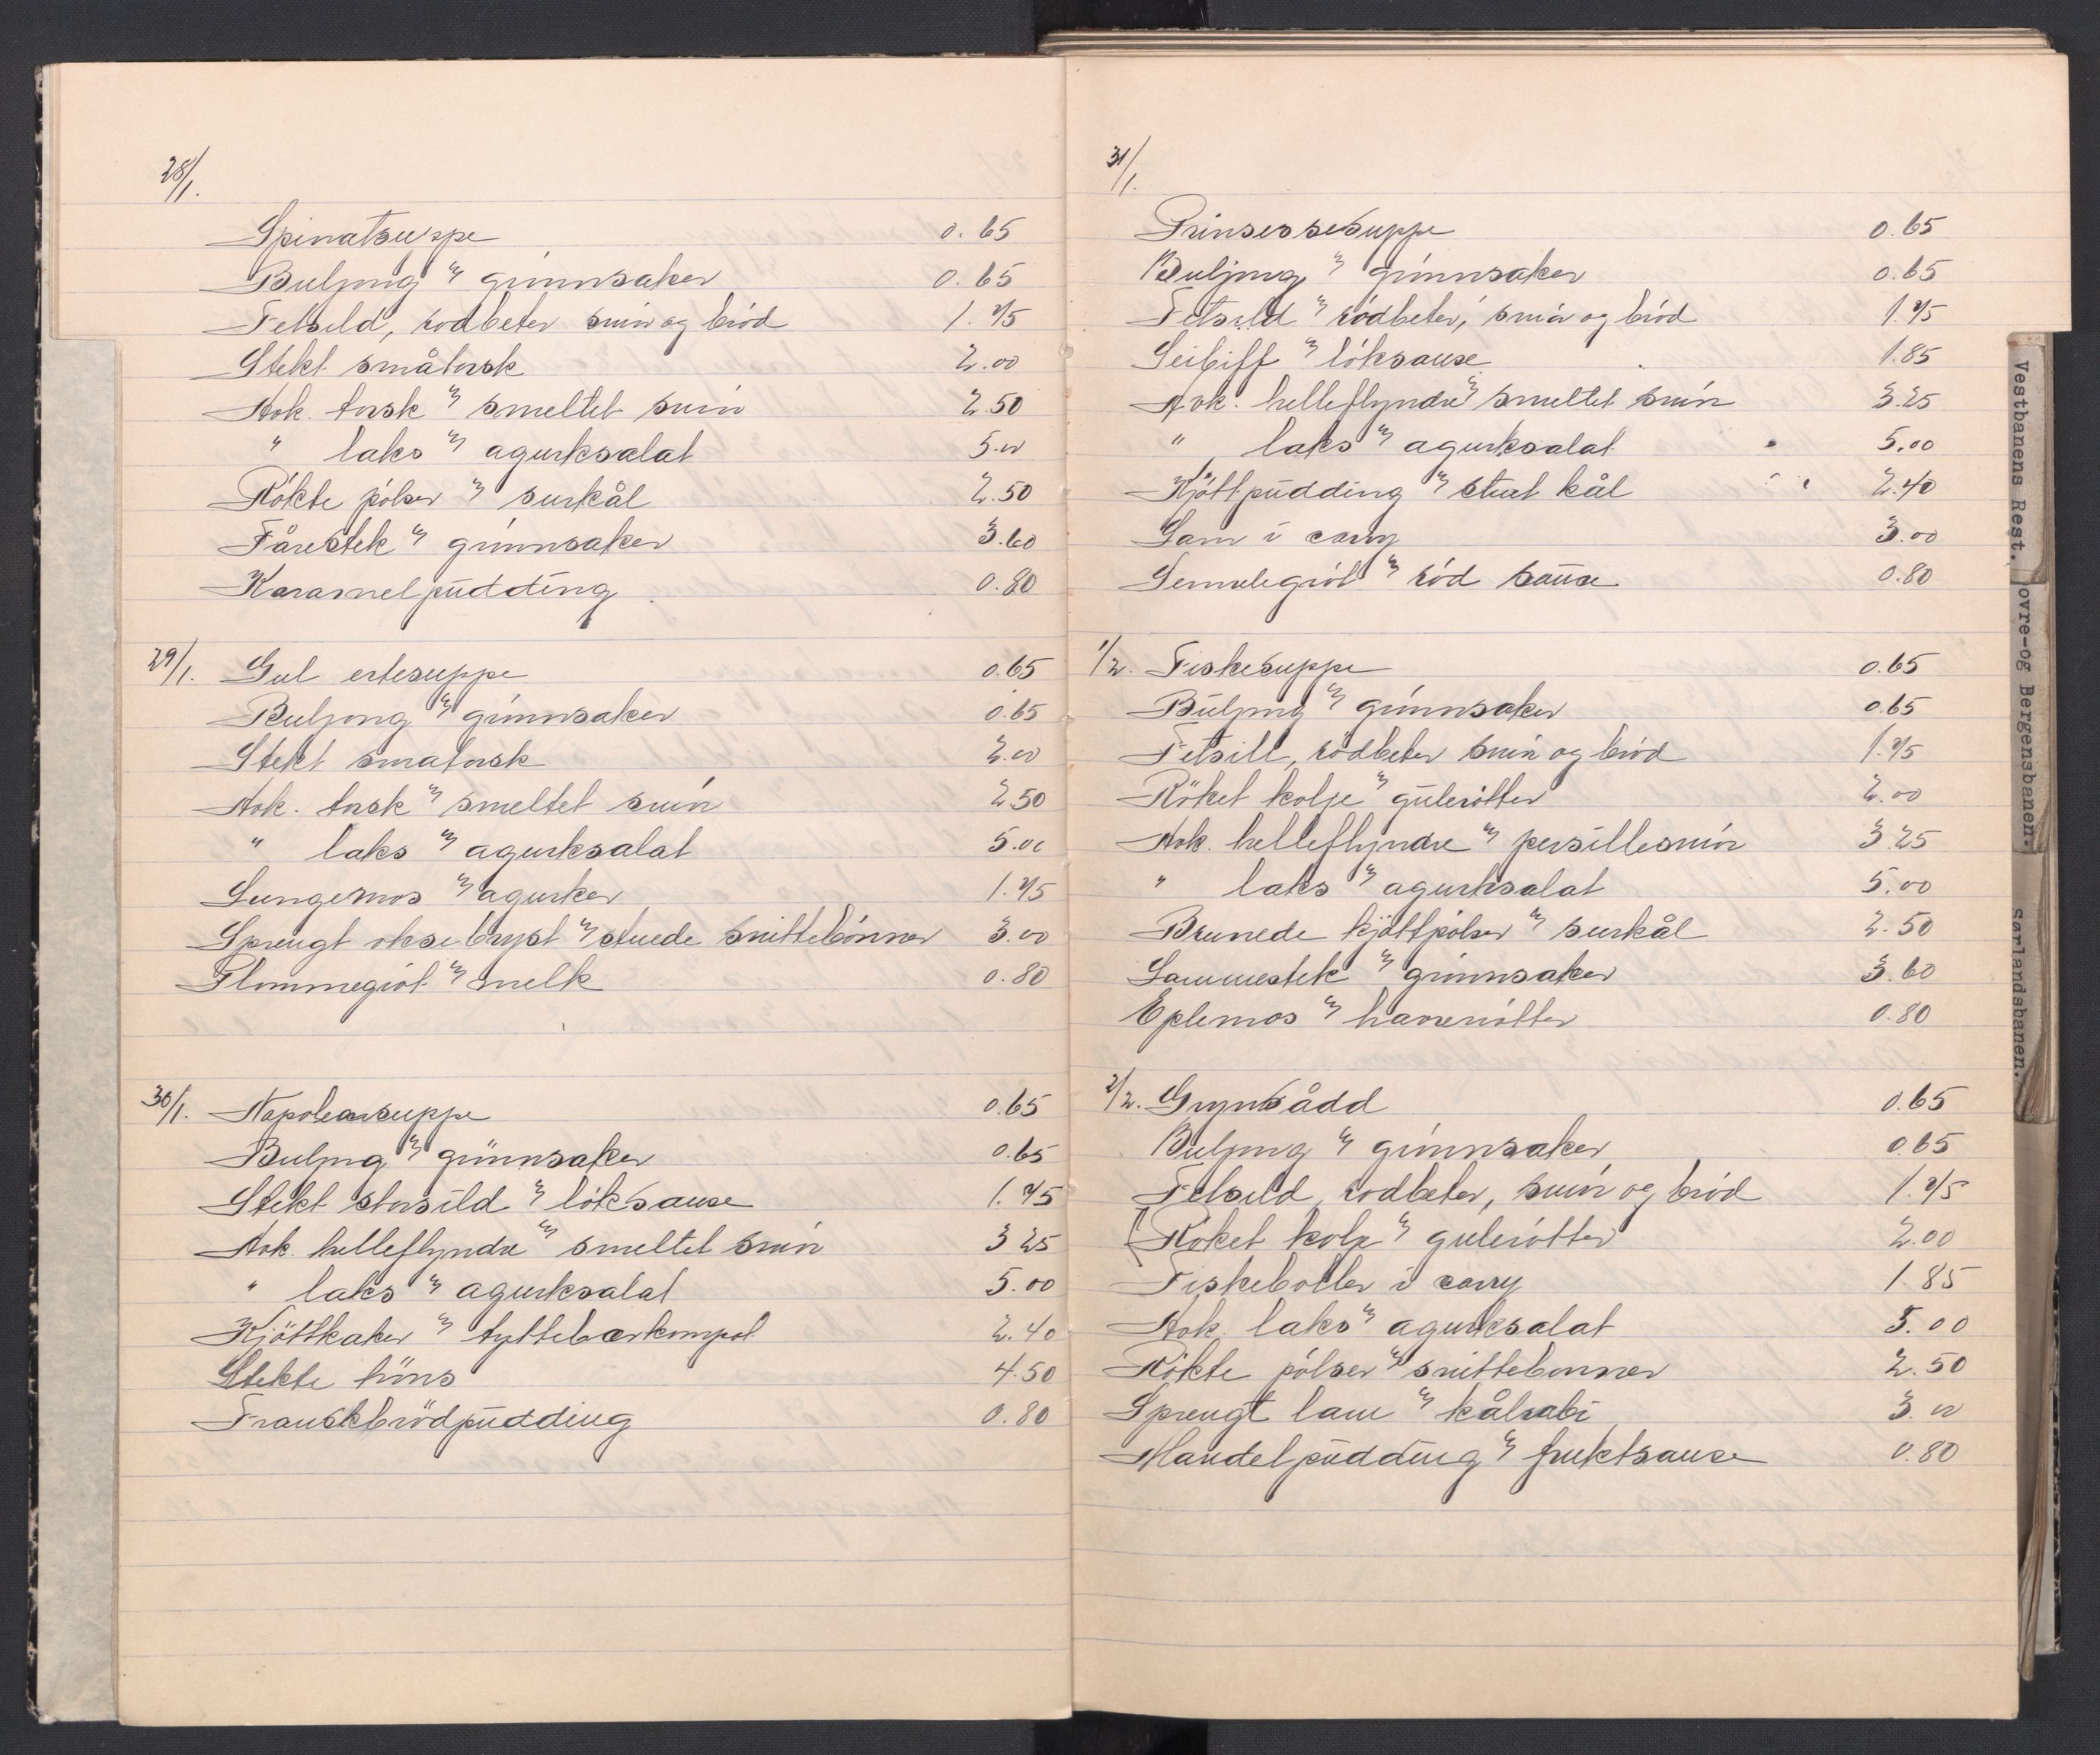 28/1.
Spinatsuppe 0.65
Buljong m grönnsaker 0.65
Fetsild, rödbeter smör og bröd 1.75
Stekt småtorsk 2.00
Kok. torsk m smeltet smör 2.50
" laks m agurksalat 5.00
Rökte pölser m surkål 2.50
Fårestek m grönnsaker 3.60
Karamelpudding 0.80
29/1. Gul ertesuppe 0.65
Buljong m grönnsaker 0.65
Stekt småtorsk 2.00
Kok. torsk m smeltet smör 2.50
" laks m agurksalat 5.00
Lungemos m agurker 1.75
Sprengt oksebryst m stuede snittebönner 3.00
Plommegröt m melk 0.80
30/1. Napoleonsuppe 0.65
Buljong m grönnsaker 0.65
Stekt storsild m löksause 1.75
Kok. helleflyndre m smeltet smör 3.25
" laks m agurksalat 5.00
Kjöttkaker m tyttebærkompot 2.40
Stekte höns 4.50
Franskbrödpudding 0.80
31/1.
Prinsessesuppe 0.65
Buljong m grönnsaker 0.65
Fetsild m rödbeter, smör og bröd 1.75
Seibiff m löksause 1.85
Kok. helleflyndre m smeltet smör 3.25
" laks m agurksalat 5.00
Kjöttpudding m stuet kål 2.40
Lam i carry 3.00
Semulegröt m röd sause 0.80
1/2. Fiskesuppe 0.65
Buljong m grönnsaker 0.65
Fetsill, rödbeter smör og bröd 1.75
Röket kolje m gulerötter 2.00
Kok. helleflyndre m persillesmör 3.25
" laks m agurksalat 5.00
Brunede kjöttpölser m surkål 2.50
Lammestek m grönnsaker 3.60
Eplemos m havrerötter 0.80
2/2. Grynsådd 0.65
Buljong m grönnsaker 0.65
Fetsild, rödbeter, smör og bröd 1.75
Röket kolje m gulerötter 2.00
Fiskeboller i carry 1.85
Kok. laks m agurksalat 5.00
Rökte pölser m snittebönner 2.50
Sprengt lam m kålrabi 3.00
Mandelpudding m fruktsause 0.80
Vestbanens Rest.
ovre-og Bergensbanen.
Sørlandsbanen.